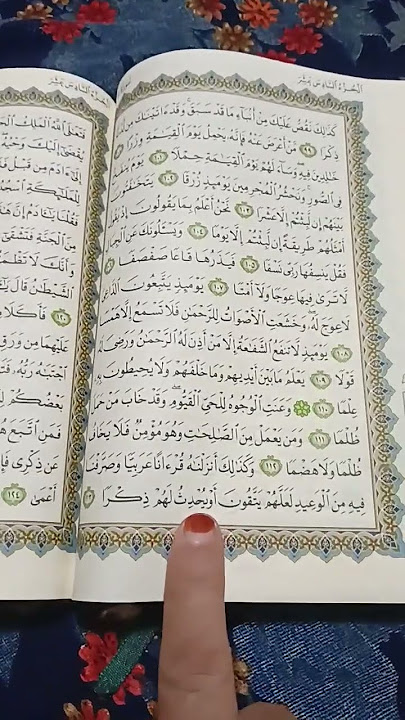 الجزء السادس عشر
كَذَٰلِكَ نَقُصُّ عَلَيْكَ مِنْ أَنۢبَآءِ مَا قَدْ سَبَقَۚ وَقَدْ ءَاتَيْنَٰكَ مِن
ذِكْرًا ٩٩ مَّنْ أَعْرَضَ عَنْهُ فَإِنَّهُۥ يَحْمِلُ يَوْمَ ٱلْقِيَٰمَةِ وِزْرًا
خَٰلِدِينَ فِيهِۖ وَسَآءَ لَهُمْ يَوْمَ ٱلْقِيَٰمَةِ حِمْلًا ١٠١ يَوْمَ
فِي ٱلصُّورِۚ وَنَحْشُرُ ٱلْمُجْرِمِينَ يَوْمَئِذٍ زُرْقًا ١٠٢ يَتَخَٰفَتُونَ
بَيْنَهُمْ إِن لَّبِثْتُمْ إِلَّا عَشْرًا ١٠٣ نَّحْنُ أَعْلَمُ بِمَا يَقُولُونَ إِذْ يَقُولُ
أَمْثَلُهُمْ طَرِيقَةً إِن لَّبِثْتُمْ إِلَّا يَوْمًا ١٠٤ وَيَسْـَٔلُونَكَ عَنِ ٱلْجِبَالِ
فَقُلْ يَنسِفُهَا رَبِّي نَسْفًا ١٠٥ فَيَذَرُهَا قَاعًا صَفْصَفًا
لَّا تَرَىٰ فِيهَا عِوَجًا وَلَآ أَمْتًا ١٠٧ يَوْمَئِذٍ يَتَّبِعُونَ ٱلدَّاعِيَ
لَا عِوَجَ لَهُۥۖ وَخَشَعَتِ ٱلْأَصْوَاتُ لِلرَّحْمَٰنِ فَلَا تَسْمَعُ إِلَّا هَمْسًا
١٠٨ يَوْمَئِذٍ لَّا تَنفَعُ ٱلشَّفَٰعَةُ إِلَّا مَنْ أَذِنَ لَهُ ٱلرَّحْمَٰنُ وَرَضِيَ لَهُۥ
قَوْلًا ١٠٩ يَعْلَمُ مَا بَيْنَ أَيْدِيهِمْ وَمَا خَلْفَهُمْ وَلَا يُحِيطُونَ بِهِۦ
عِلْمًا ١١٠ ۞ وَعَنَتِ ٱلْوُجُوهُ لِلْحَيِّ ٱلْقَيُّومِۖ وَقَدْ خَابَ مَنْ حَمَلَ
ظُلْمًا ١١١ وَمَن يَعْمَلْ مِنَ ٱلصَّٰلِحَٰتِ وَهُوَ مُؤْمِنٌ فَلَا يَخَافُ
ظُلْمًا وَلَا هَضْمًا ١١٢ وَكَذَٰلِكَ أَنزَلْنَٰهُ قُرْءَانًا عَرَبِيًّا وَصَرَّفْنَا
فِيهِ مِنَ ٱلْوَعِيدِ لَعَلَّهُمْ يَتَّقُونَ أَوْ يُحْدِثُ لَهُمْ ذِكْرًا ١١٣
فَتَعَٰلَى ٱللَّهُ ٱلْمَلِكُ
يُقْضَىٰٓ إِلَيْكَ وَحْيُهُۥ
إِلَىٰٓ ءَادَمَ مِن قَبْلُ
لِلْمَلَٰٓئِكَةِ
فَقُلْنَا يَٰٓـَٔادَمُ إِنَّ
مِنَ ٱلْجَنَّةِ فَتَشْقَىٰٓ
وَأَنَّكَ لَا
ٱلشَّيْطَٰنُ قَالَ
١٢٠ فَأَكَلَا
عَلَيْهِمَا مِن وَرَقِ
ٱجْتَبَٰهُ رَبُّهُۥ
بَعْضُكُمْ
فَمَنِ ٱتَّبَعَ
عَن ذِكْرِي
أَعْمَىٰ ١٢٤